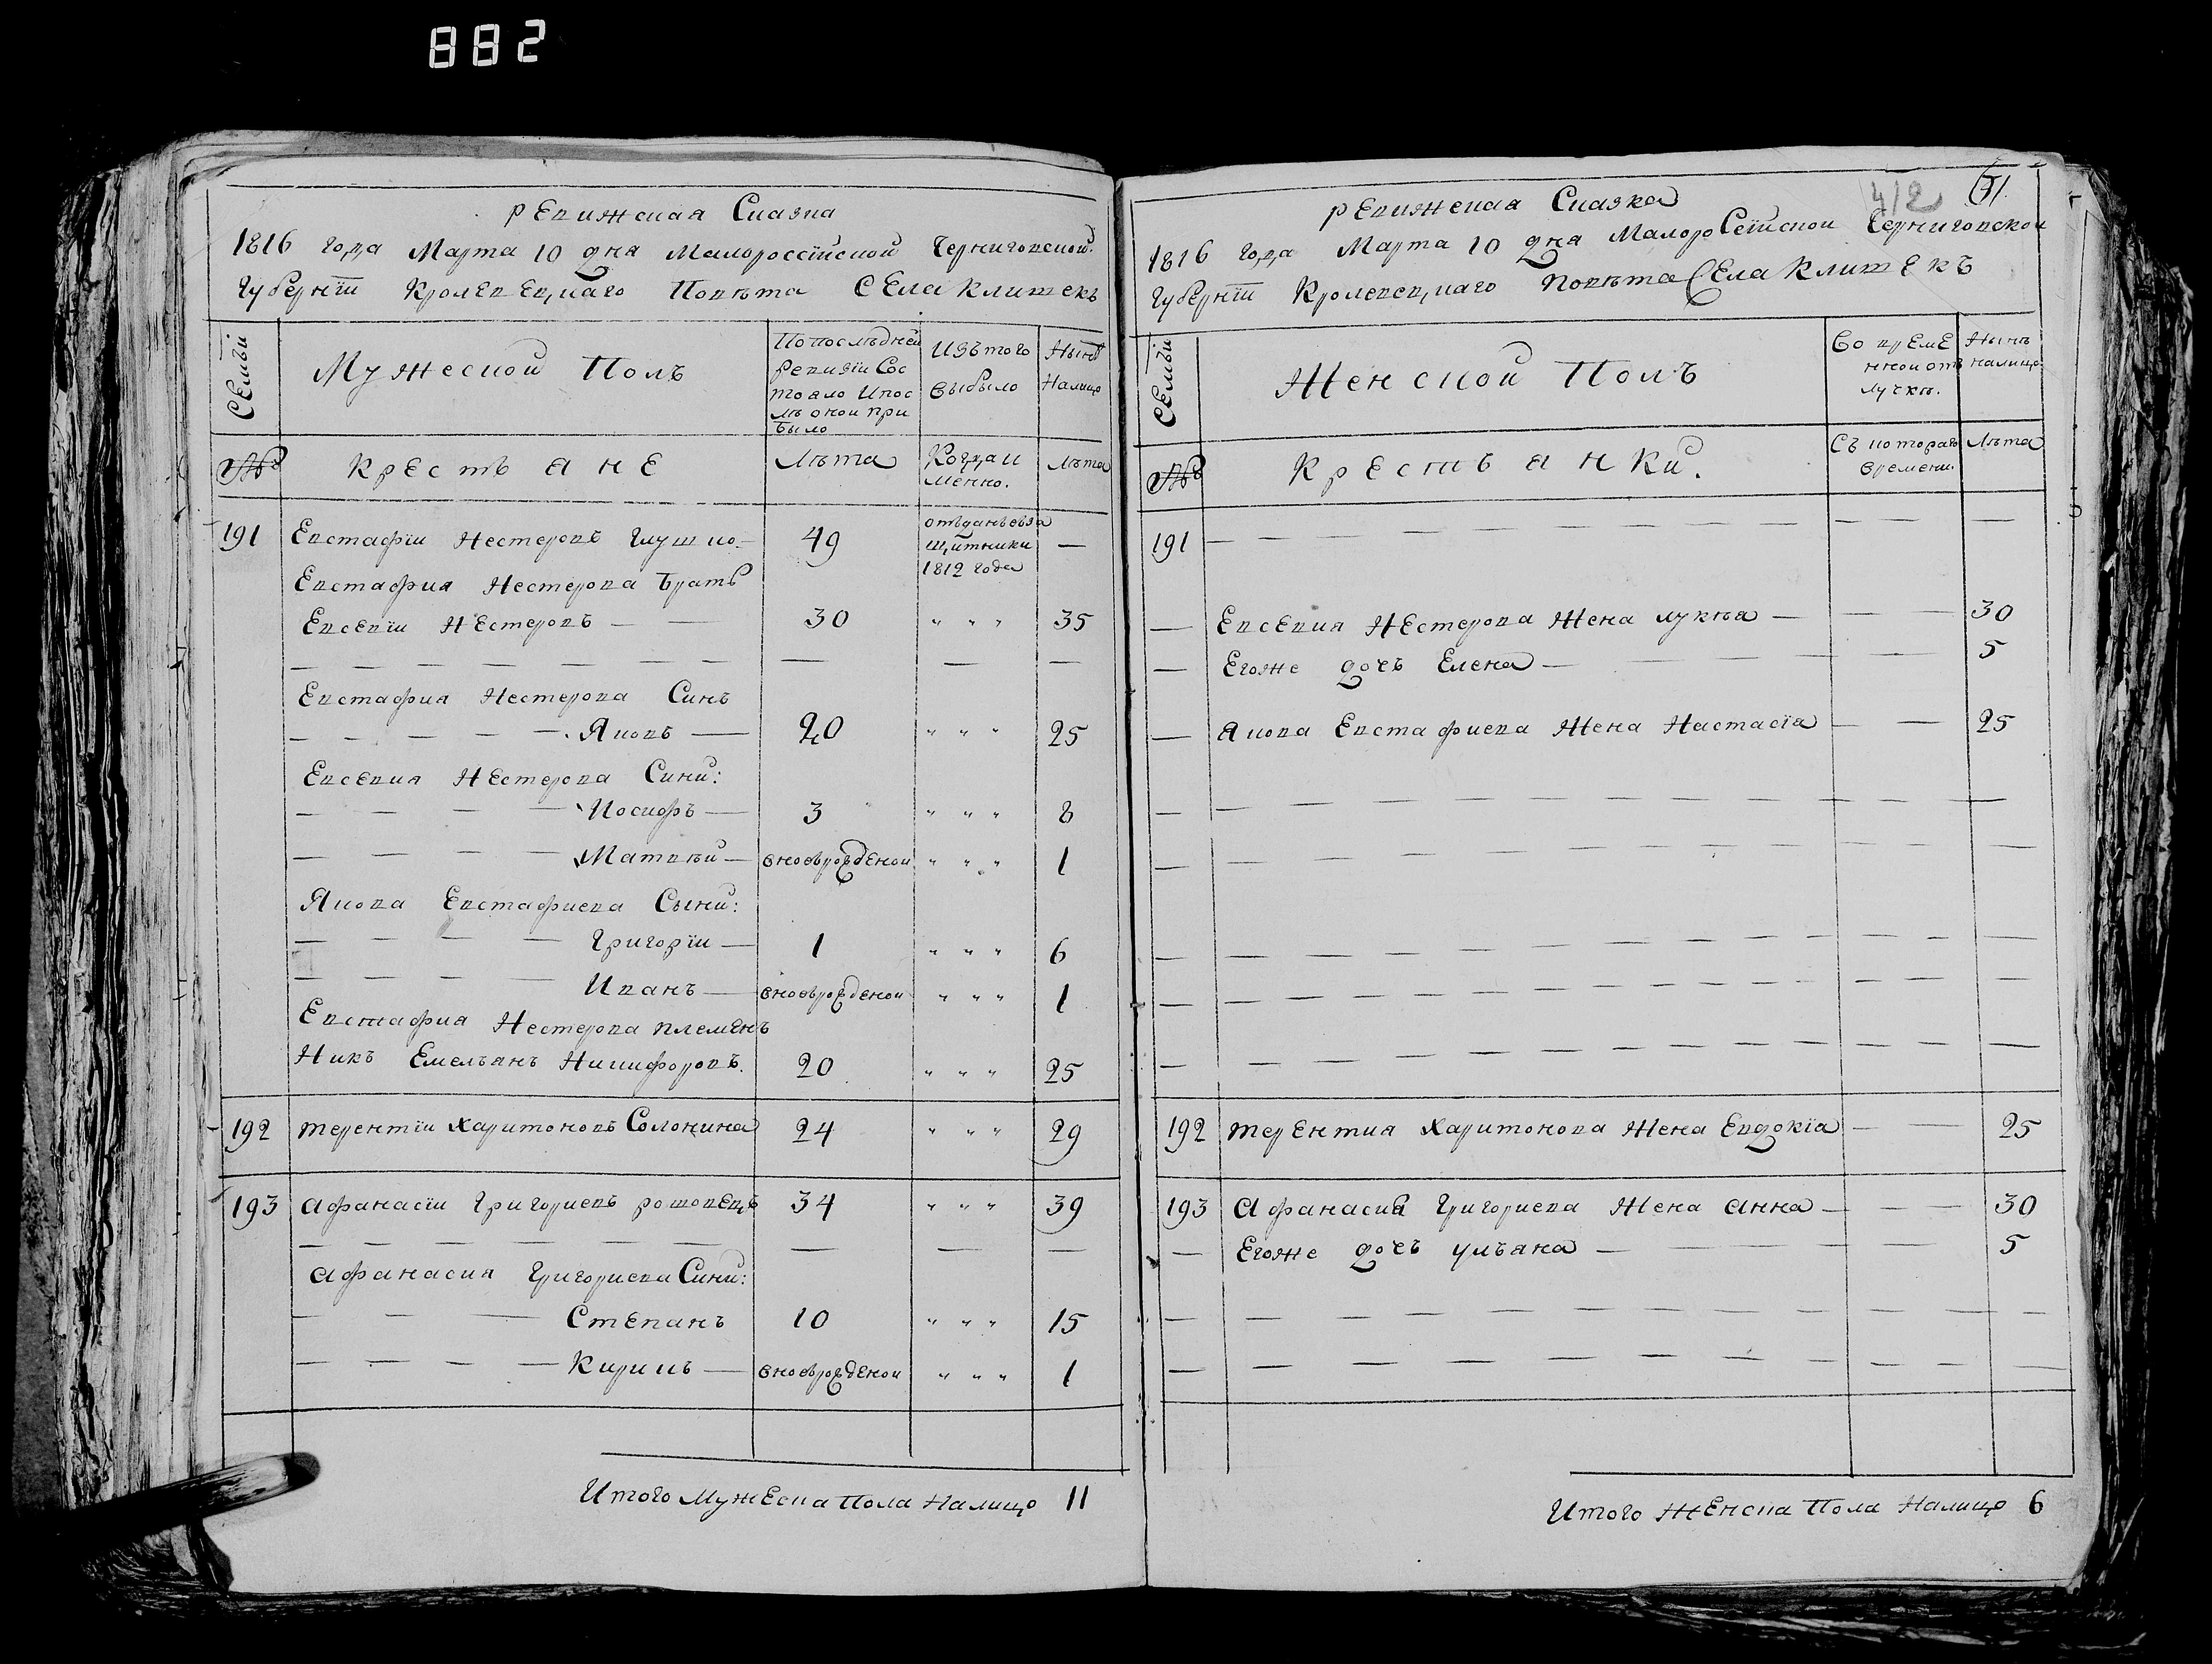 882
Ревижская Сказка
1816 года Марта 10 дня Малороссійской Черниговской
Губерніи Кролевецкаго Повѣта Села Клишекъ
Семьи
Мужеской Полъ
По последней ревизіи состояло и после оной прибыло
Изъ того выбыло
Нынѣ налицо
№
Крестьяне
Лѣта
Когда именно.
Лѣта
191 Евстафіи Нестеровъ Глушко 49 отъданъ въ защитники 1812 года —
Евстафия Нестерова братъ
Евсевіи Нестеровъ — 30 " " " 35
Евстафия Нестерова Синъ
Яковъ — 20 " " " 25
Евсевия Нестерова Сини:
Иосифъ — 3 " " " 8
Матвѣй — вновьрожденои " " " 1
Якова Евстафиева Сыни:
Григоріи — 1 " " " 6
Иванъ — вновьрожденои " " " 1
Евстафия Нестерова племенъ
никъ Емельянъ Никифоровъ. 20 " " " 25
192 Терентіи Харитоновъ Солонина 24 " " " 29
193 Афанасіи Григориевъ рошовецъ 34 " " " 39
Афанасия Григориева Сини:
Степанъ 10 " " " 15
Кирилъ — вновьрожденои " " " 1
Итого Мужеска Пола Налицо 11
412
Ревижская Сказка
1816 года Марта 10 дня Малоросейской Черниговской
Губерніи Кролевецкаго Повѣта Села Клишекъ
Семьи
Женской Полъ
Во временной отлучкѣ.
Нынѣ налицо
№
Крестьянки.
Съ котораго времени.
Лѣта
191
— Евсевия Нестерова Жена Лукѣа — 30
— Егоже дочь Елена — 5
— Якова Евстафиева Жена Настасіа — 25
192 Терентия Харитонова Жена Евдокіа — 25
193 Афанасия Григориева Жена Анна — 30
— Егоже дочь Ульяна — 5
Итого Женска Пола Налицо 6